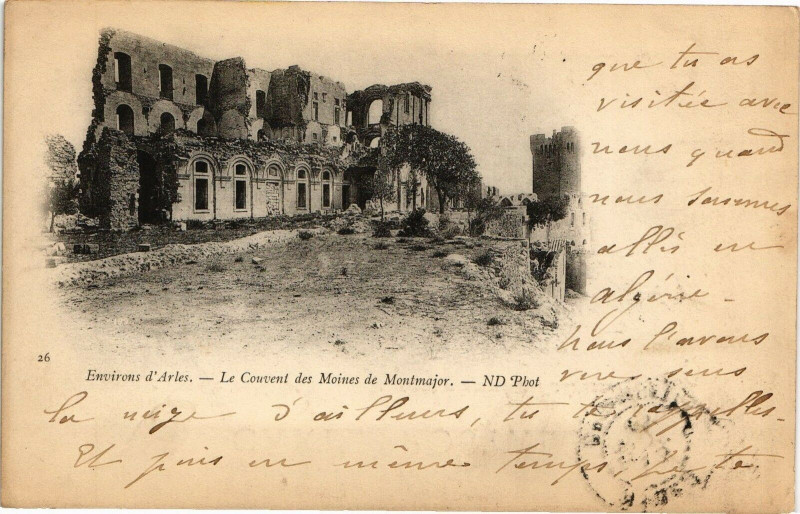 que tu as
visitée avec
nous quand
nous sommes
allés en
algérie -
Nous l'avons
vue sous
26
Environs d'Arles. — Le Couvent des Moines de Montmajor. — ND Phot
la neige d'ailleurs, tu te rappelles -
Et puis en même temps, je te